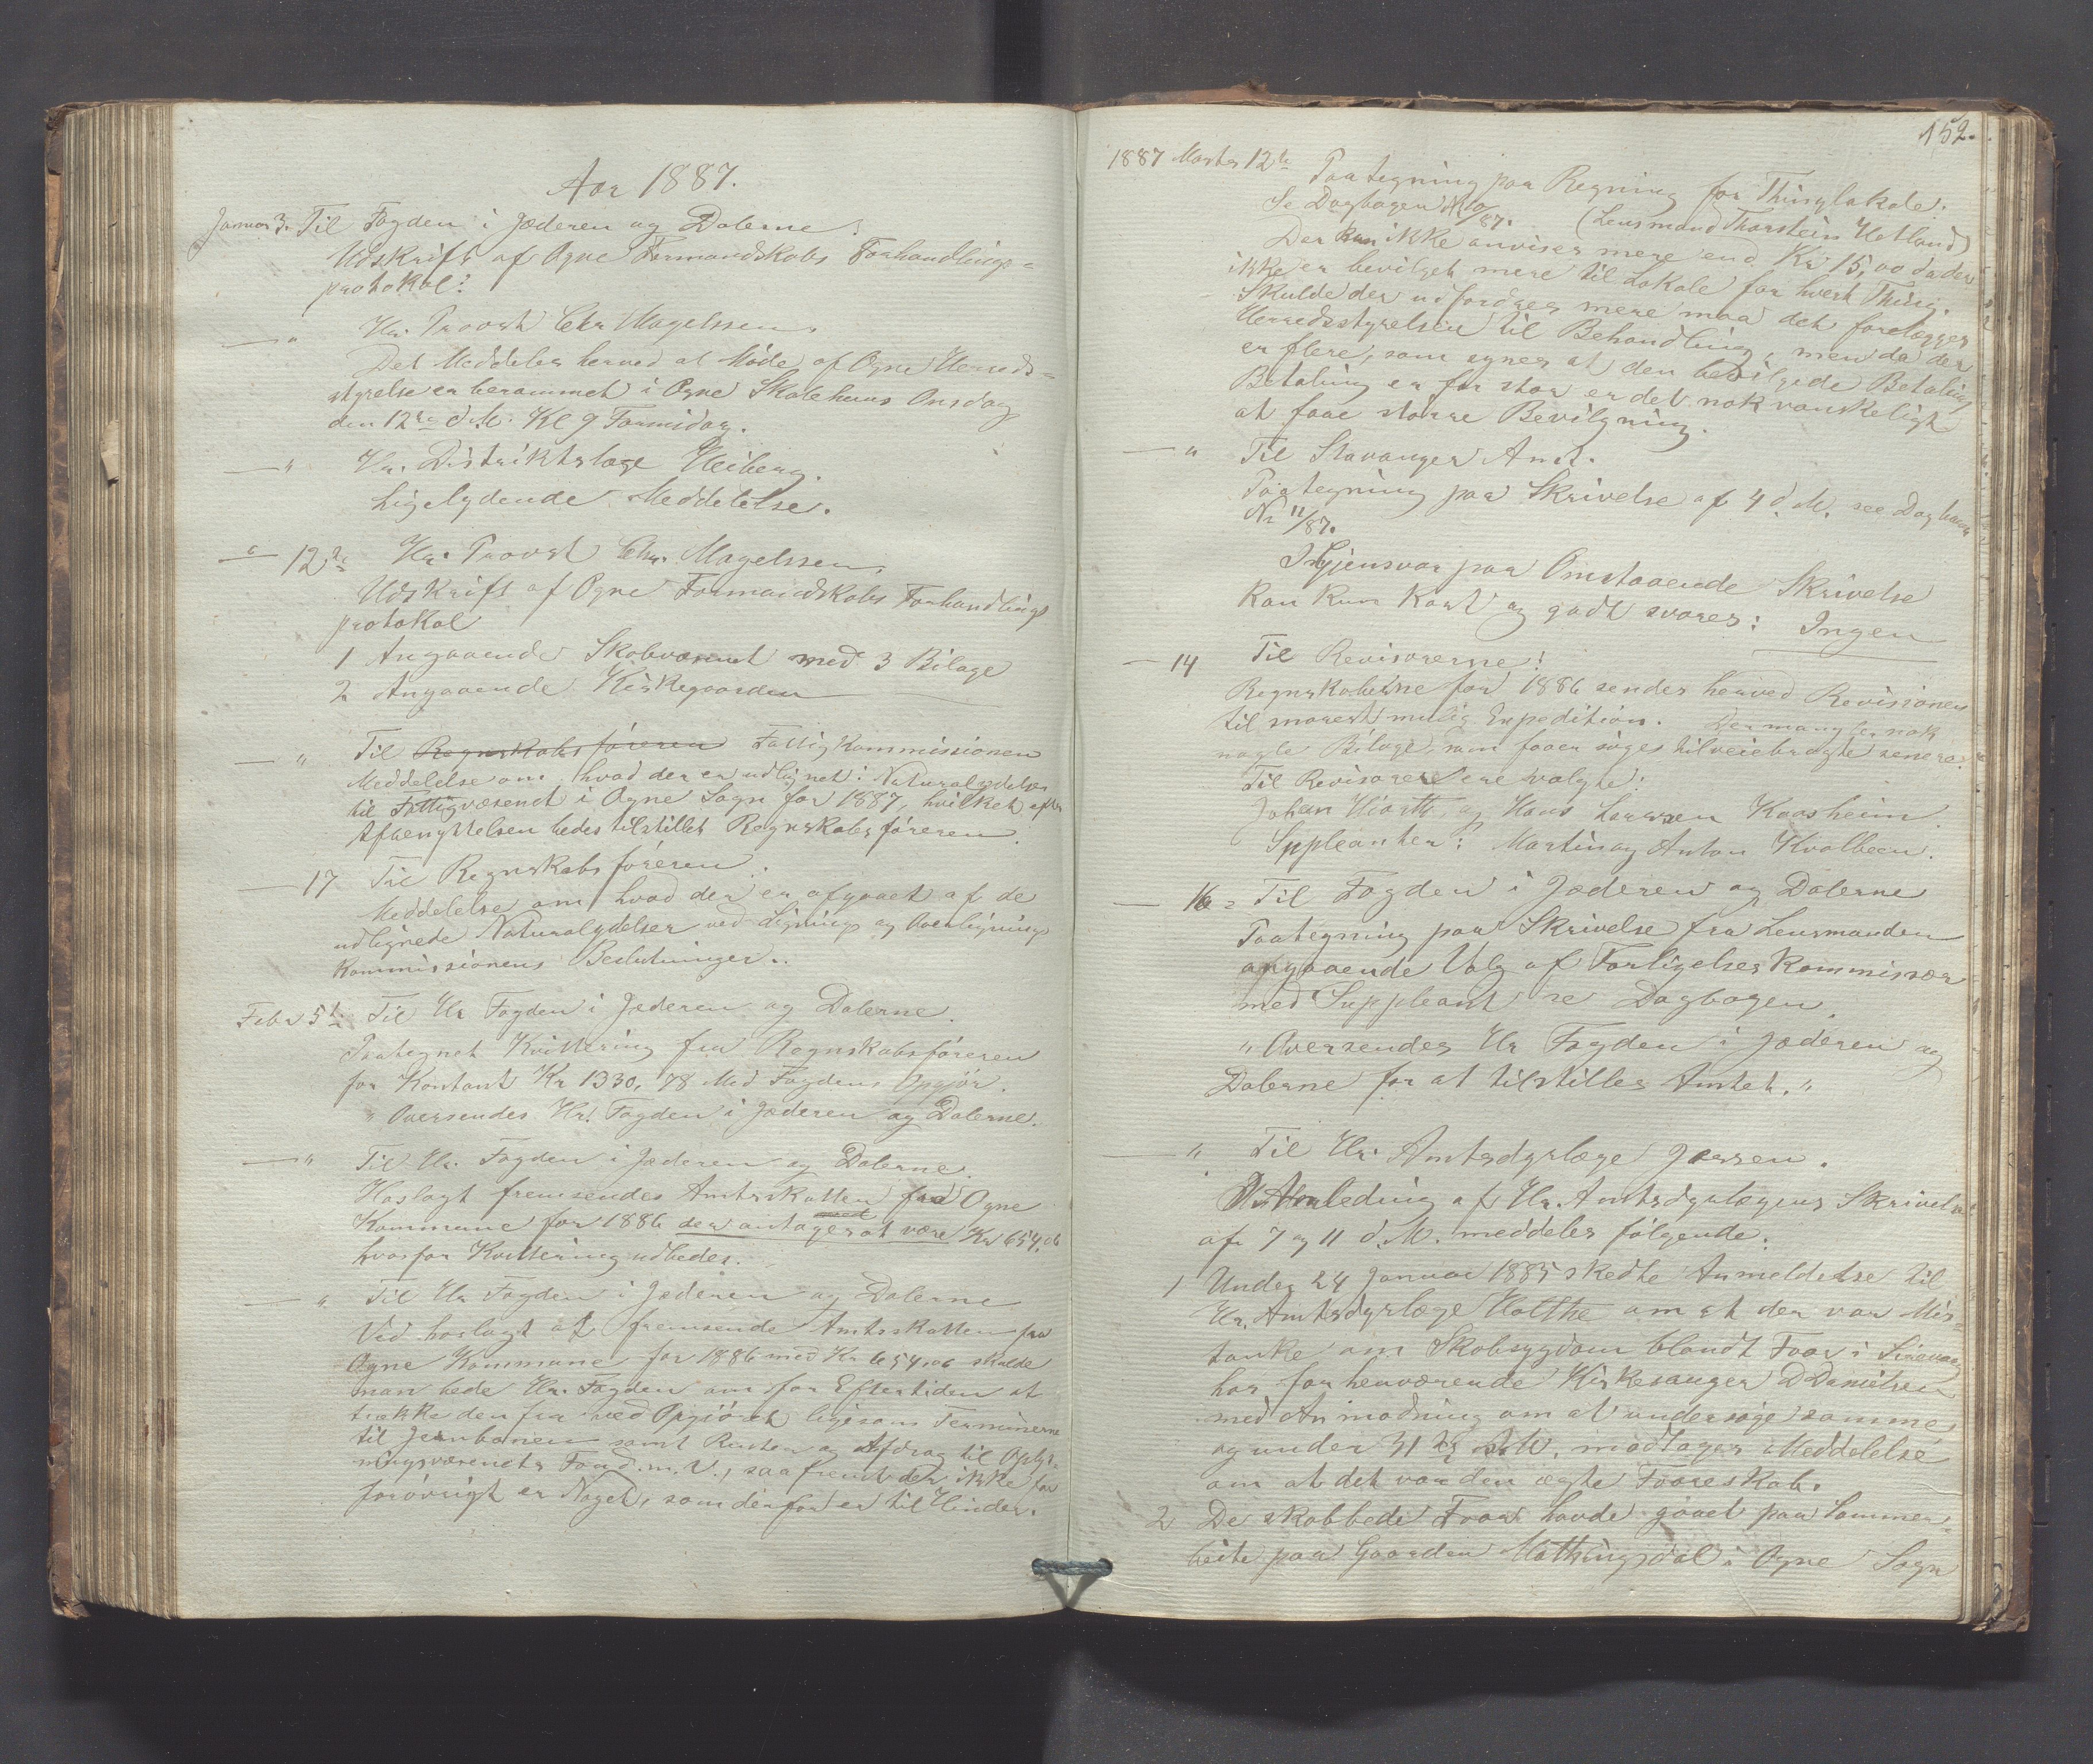 Aar 1887.
Januar 3. Til Fogden i Jæderen og Dalerne!
Udskrift af Ogne Formandskabs Forhandlings=
protokol!
— " Hr. Provst Chr Magelssen.
Det Meddeles herved at Møde af Ogne Herreds=
styrelse er berammet i Ogne Skolehuus Onsdag
den 12te d.M. Kl 9 Formidag.
— " Hr. Distriktslæge Heiberg.
Ligelydende Meddelelse.
— " 12te Hr. Provst Chr. Magelssen.
Udskrift af Ogne Formandskabs Forhandlings
protokol
1 Angaaende Skolevæsenet med 3 Bilage
2 Angaaende Kirkegaarden
— " Til Regnskabsføreren Fattigkommissionen
Meddelelse om hvad der er udlignet i Naturalydelser
til Fattigvæsenet i Ogne Sogn for 1887, hvilket efter
Afbenyttelsen bedes tilstillet Regnskabsføreren.
— 17 Til Regnskabsføreren.
Meddelelse om hvad der er afgaaet af de
udlignede Naturalydelser ved Lignings og Overlignings
Kommissionens Beslutninger..
Febr 5te Til Hr Fogden i Jæderen og Dalerne.
Paategnet Kvittering fra Regnskabsføreren
for Kontant Kr 1330,78 Med Fogdens Opgjør.
" Oversendes Hr. Fogden i Jæderen og Dalerne.
— " Til Hr. Fogden i Jæderen og Dalerne.
Hoslagt fremsendes Amtsskatten fra Ogne
Kommune for 1886 der antages at være Kr 654,06
hvorfor Kvittering udbedes.
— " Til Hr Fogden i Jæderen og Dalerne
Ved hoslagt at fremsende Amtsskatten fra
Ogne Kommune for 1886 med Kr 654,06 skulde
man bede Hr. Fogden om for Eftertiden at
trække den fra ved Opgjøret ligesom Terminerne
til Jernbanen samt Renter og Afdrag til Oplys-
ningsvæsenets Fond m.V., saafremt der ikke for
forøvrigt er Noget, som derfor er til Hinder.
152.
1887 Marts 12te Paategning paa Regning for Thinglokale.
Se Dagbogen No 10/87. (Lensmand Thorstein Hetland)
Der kan ikke anvises mere end Kr 15,00 da der
ikke er bevilget mere til Lokale for hvert Thing.
Skulde der udfordres mere maa det forelægges
Herredsstyrelsen til Behandling, men da der
er flere, som synes at den bevilgede Betaling
Betaling er for stor er det nok vanskeligt
at faae større Bevilgning.
— " Til Stavanger Amt.
Paategning paa Skrivelse af 4 d.M. see Dagbogen
No 11/87.
I Gjensvar paa Omstaaende Skrivelse
kan kun kort og godt svares: Ingen
— 14 Til Revisorerne!
Regnskaberne for 1886 sendes herved Revisionen
til snarest mulig Expedition. Der mangler nok
nogle Bilage, som faaer søges tilveiebragte senere.
Til Revisorer ere valgte:
Johan Hiorth og Hans Larssen Kaasheim
Suppleanter: Martin og Anton Kvalbein.
— 16 = Til Fogden i Jæderen og Dalerne
Paategning paa Skrivelse fra Lensmanden
angaaende Valg af Forligelses Kommissær
med Suppleant se Dagbogen.
" Oversendes Hr Fogden i Jæderen og
Dalerne for at tilstilles Amtet. "
— " Til Hr. Amtsdyrlæge Jessen.
Anledning af Hr. Amtsdyrlægens Skrivelse
af 7 og 11 d.M. meddeles følgende:
1 Under 24 Januar 1885 skedte Anmeldelse til
Hr. Amtsdyrlæge Holthe om at der var Mis=
tanke om Skabsygdom blandt Faar i Sirevaag
hos forhenværende Kirkesanger D Danielsen
med Anmodning om at undersøge samme,
og under 31 s.M. modtages Meddelelse
om at det var den ægte Faareskab.
2 De skabbede Faar havde gaaet paa Sommer-
beite paa Gaarden Mathingsdal i Ogne Sogn